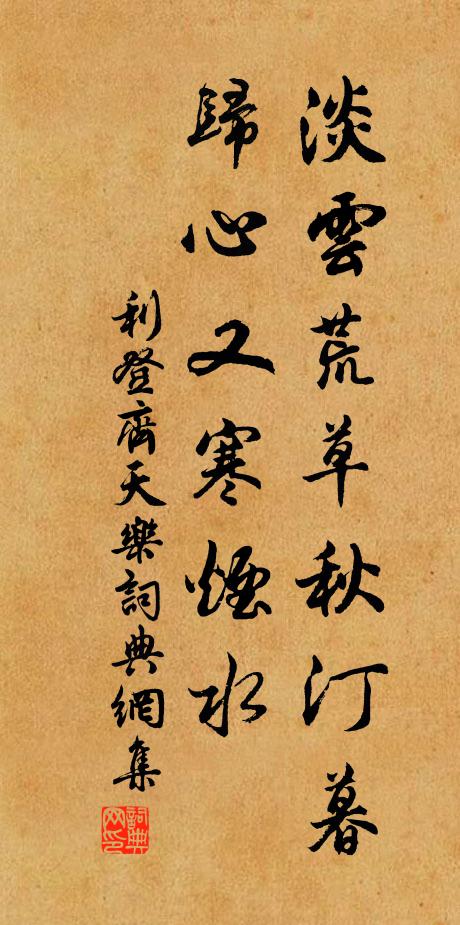 淡雲荒草秋汀暮
歸心又寒煙水
利登齊天樂詞典網集
詞典网印